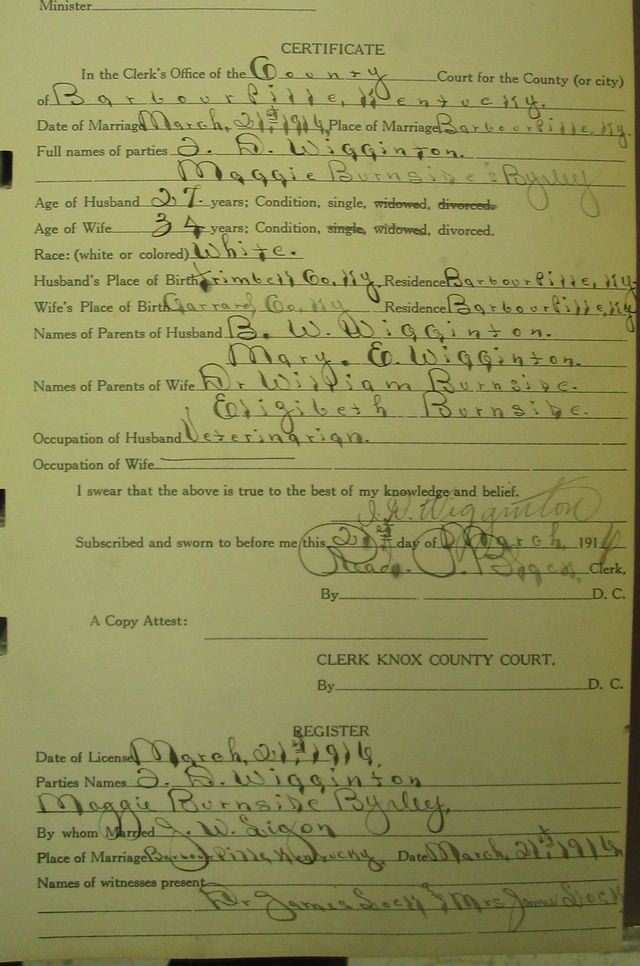 Minister
CERTIFICATE
In the Clerk's Office of the County Court for the County (or city)
of Barbourville, Kentucky.
Date of Marriage March, 21st, 1916, Place of Marriage Barbourville, Ky.
Full names of parties D. Wigginton.
Maggie Burnside Byrley
Age of Husband 27 years; Condition, single, widowed, divorced.
Age of Wife 34 years; Condition, single, widowed, divorced.
Race: (white or colored) White.
Husband's Place of Birth Trimbell Co, Ky. Residence Barbourville, Ky.
Wife's Place of Birth Garrard, Co, Ky Residence Barbourville, Ky
Names of Parents of Husband B. W. Wigginton.
Mary. E. Wigginton.
Names of Parents of Wife Dr William Burnside.
Eligibeth Burnside.
Occupation of Husband Veterinarian.
Occupation of Wife
I swear that the above is true to the best of my knowledge and belief.
Wigginton
Subscribed and sworn to before me this 21st day of March, 1916
Read. P. Black, Clerk,
By D. C.
A Copy Attest:
CLERK KNOX COUNTY COURT.
By D. C.
REGISTER
Date of License March, 21st, 1916.
Parties Names D. Wigginton
Maggie Burnside Byrley,
By whom Married J. W. Ligon
Place of Marriage Barbourville, Kentucky. Date March, 21st, 1916
Names of witnesses present
Dr James Lock & Mrs James Lock